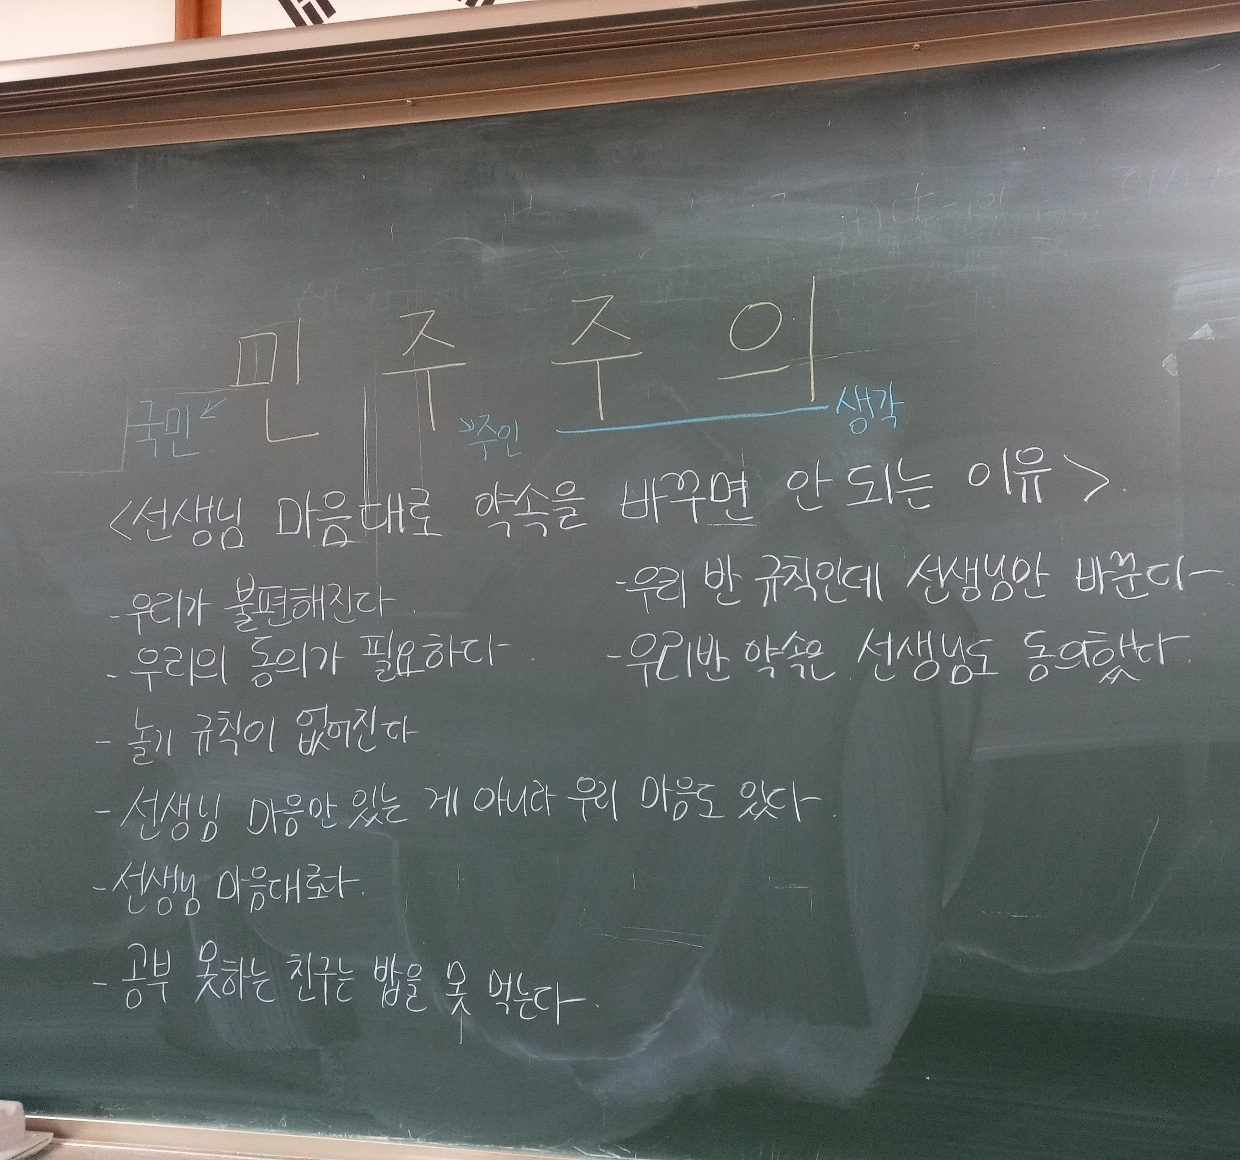 민 주 주 의
국민 주인 생각
<선생님 마음대로 약속을 바꾸면 안 되는 이유>
-우리가 불편해진다
-우리의 동의가 필요하다.
-놀기 규칙이 없어진다
-선생님 마음만 있는 게 아니라 우리 마음도 있다.
-선생님 마음대로다.
-공부 못하는 친구는 밥을 못 먹는다.
-우리 반 규칙인데 선생님만 바꾼다
-우리반 약속은 선생님도 동의했다.